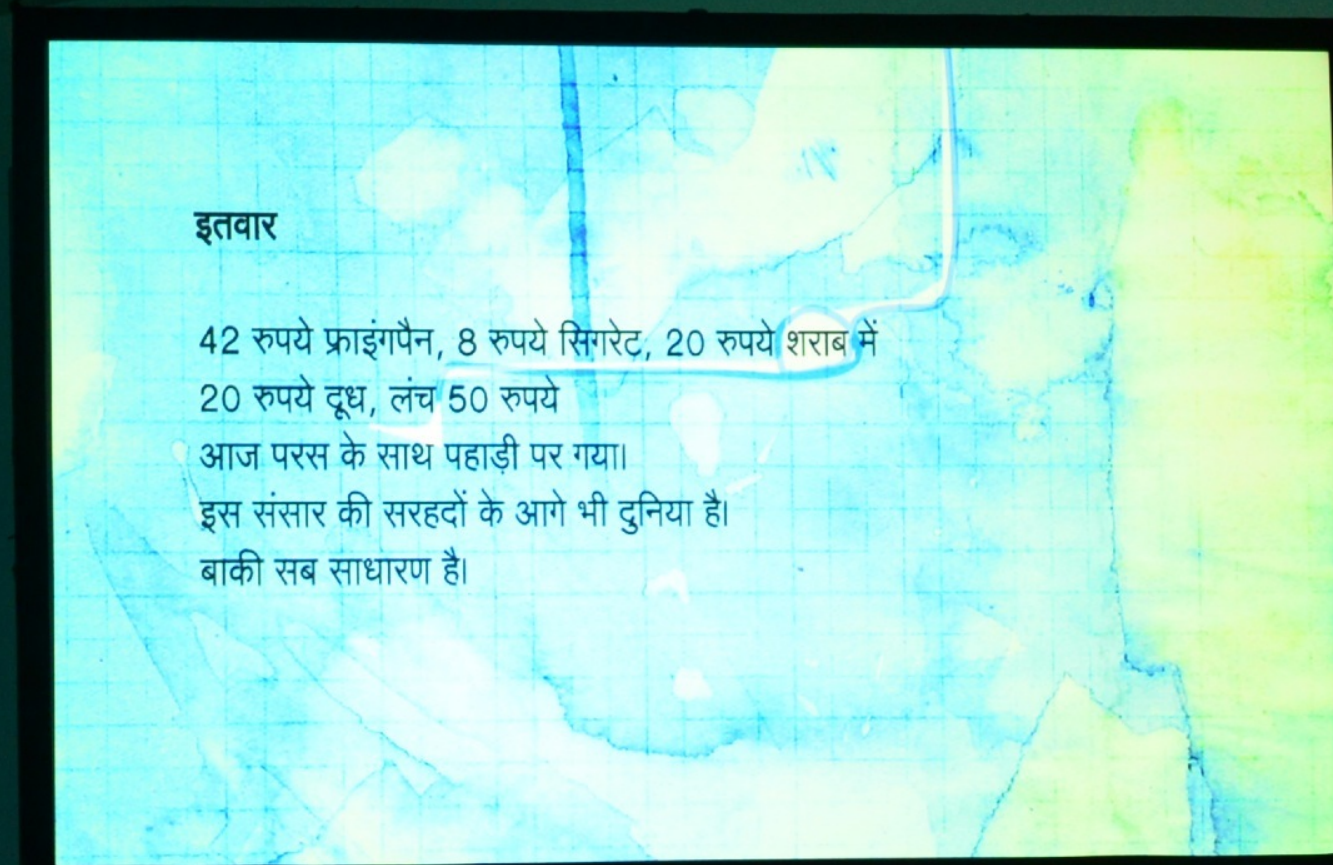 इतवार
42 रुपये फ्राइंगपैन, 8 रुपये सिगरेट, 20 रुपये शराब में
20 रुपये दूध, लंच 50 रुपये
आज परस के साथ पहाड़ी पर गया।
इस संसार की सरहदों के आगे भी दुनिया है।
बाकी सब साधारण है।